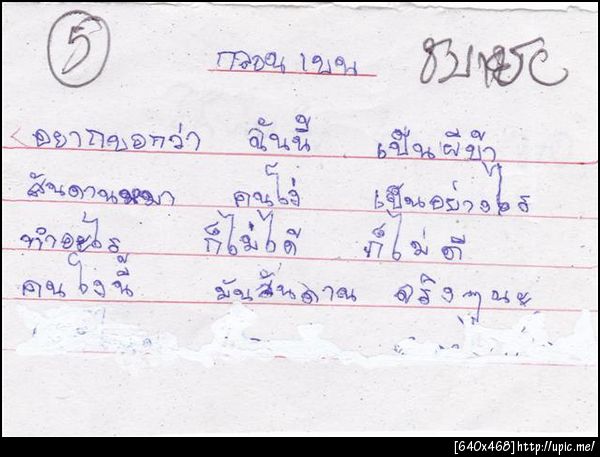 5 กลอน เบน
อยากบอกว่า ฉันนี้ เป็นผีบ้า
สันดานหมา คนโง่ เป็นอย่างไร
ทำอะไร ก็ไม่ได้ ก็ไม่ดี
คนโง่นี้ มันสันดาน จริงๆนะ
[640x468]http://upic.me/